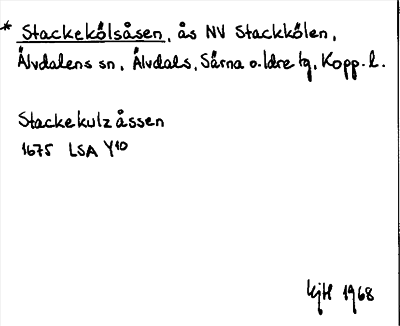 * Stackekölsåsen, ås NV Stackkölen,
Älvdalens sn, Älvdals, Särna o. Idre tg, Kopp. l.
Stackekulzåssen
1675 LSA Y10
KjH 1968